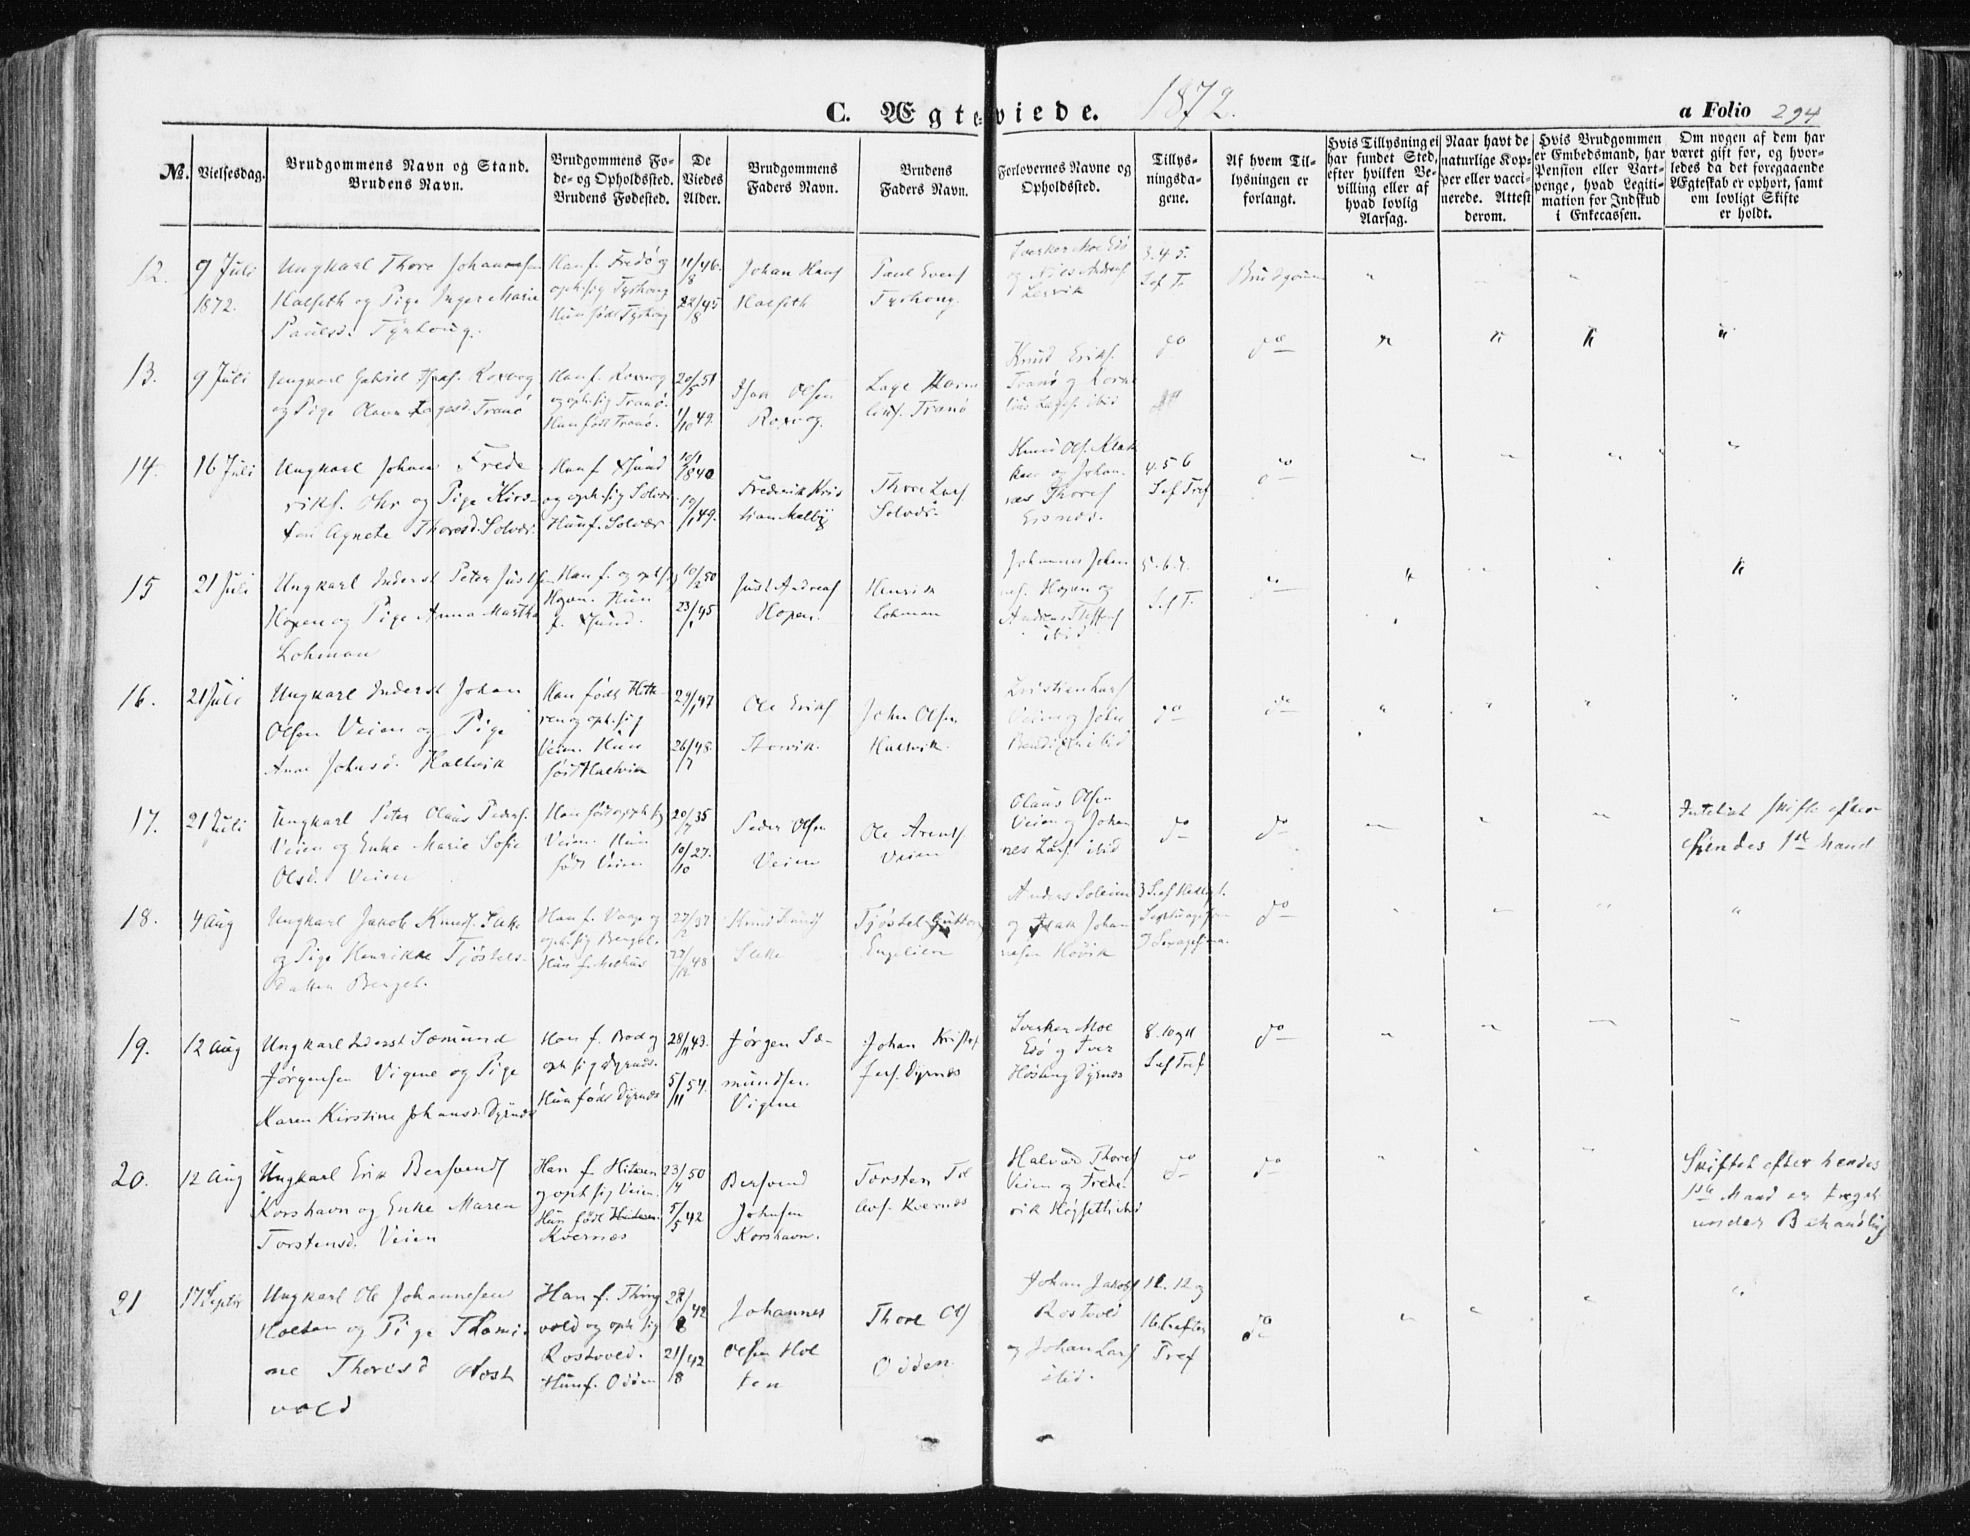 C. Ægteviede. 1872.
a Folio 294
No.
Vielsesdag.
Brudgommens Navn og Stand.
Brudens Navn.
Brudgommens Fo-
de- og Opholdssted.
Brudens Fødested.
De
Viedes
Alder.
Brudgommens
Faders Navn.
Brudens
Faders Navn.
Forlovernes Navne og
Opholdssted.
Tillys-
ningsda-
gene.
Af hvem Til-
lysningen er
forlangt.
Hvis Tillysning ei
har fundet Sted,
efter hvilken Be-
villing eller af
hvad lovlig
Aarsag.
Naar havt de
naturlige Kop-
per eller vacci-
nerede. Attest
derom.
Hvis Brudgommen
er Embedsmand, har
Pension eller Vart-
penge, hvad Legiti-
mation for Indskud
i Enkecassen.
Om nogen af dem har
været gift før, og hvor-
ledes da det foregaaende
Ægteskab er ophørt, samt
om lovligt Skifte
er holdt.
12.
9 Juli
1872.
Ungkarl Thore Johannesen
Halseth og Pige Inger Marie
Paulsd. Tyrhoug.
Han f. Fredø og
oph. sig Tyrhoug
Hun født Tyrhoug
11/8 46.
22/8 45
Johan Hans
Halseth
Paul Evers
Tyrhoug.
Sverker Moe Edø
og Nils Andreas
Lervik
3. 4. 5.
S. ef. T.
Brudgommen
13.
9 Juli
Ungkarl Gabriel Isaks. Roxvog
og Pige Olava Lagesd. Tranø
Han f. Roxvog
og oph. sig Tranø.
Hun født Tranø.
20/5 51
1/10 49.
Isak Olsen
Roxvog.
Lage Korne
lius. Tranø
Knud Eriks.
Tranø og Korne
lius Lages. ibid
do
do
14.
16 Juli
Ungkarl Johan Frede
riks. Ohr og Pige Kirs-
ten Agnete Thoresd. Solvær.
Han f. Xsund
og oph. sig Solvær.
Hun f. Solvær
840
10/1 49.
Frederik Kris
tian Melbÿ
Thore Lars
Solvær.
Knud Ols. Klak
ken og Johan-
nes Thores
Ersnæs.
4. 5 6
S. ef Tref
do
15
21 Juli
Ungkarl Inderst Peter Justsen
Hopen og Pige Anna Martha
Lohman
Han f. og oph. sig
Hopen. Hun
f. Xsund.
10/2 50
23/1 45
Just Andreas
Hopen.
Henrik
Lohman
Johannes Johan
nes. Hopen og
Andreas
ibid
5. 6. 7.
S. ef T.
do
16.
21 Juli
Ungkarl Inderst Johan
Olsen Veien og Pige
Ane Johnsd. Halsvik
Han født Hitte-
ren og oph. sig
Veien. Hun
født Halsvik
29/1 47
26/7 48.
Ole Eriks
Storvik.
John Olsen
Halsvik.
Kristian Lars
Veien og John
Bendixen ibid
do
do
17.
21 Juli
Ungkarl Peter Olaus Peders.
Veien og Enke Marie Sofie
Olsd. Veien
Han født og oph. sig
Veien. Hun
født Veien
20/7 35
10/10 27.
Peder Olsen
Veien
Ole Arents
Veien
Olaus Olsen
Veien og Johan
nes Lars. ibid
do
do
Intetligt Skifte efter
hendes 1ste Mand
18.
4 Aug
Ungkarl Jakob Knuds. Slette
og Pige Henrikke Tjøstels-
datter Bergel.
Han f. Vaage og
oph. sig Bergel.
Hun f. Melhus
27/2 37
23/12 48
Knud Knuds
Slette
Tjøstel Guttorms
Engelien
Anders Soleim
og Isak Johan
nesen Høvik
3 S. ef Hellig 3.
Septuagesima
Sexagesima.
do
19.
12 Aug
Ungkarl Inderst Sæmund
Jørgensen Vigene og Pige
Karen Kirstine Johansd. Dÿrnæs
Han f. Bod og
oph. sig Dÿrnæs.
Hun født Dÿrnæs
28/11 43.
5/11 54.
Jørgen Sæ-
mundsen
Vigene
Johan Kristof
fers. Dÿrnæs
Sverker Moe
Edø og Iver
Høsling Dÿrnæs
8. 10 og 11
S. ef Tref
do
20.
12 Aug
Ungkarl Erik Bersvends
Korshavn og Enke Maren
Torstensd. Veien
Han f. Hitteren
og oph. sig Veien.
Hun født Hitteren.
Kvernæs
23/4 50
5/5 42
Bersvend
Johnsen
Korshavn.
Torsten Tol
levs. Kvernæs
Halvard Thores
Veien og Frede
rik Høgseth ibid
do
do
Skiftet efter hendes
1ste Mand er taget
under Behandling
21
17 Septbr
Ungkarl Ole Johannesen
Holten og Pige Thomi-
ne Thoresd Rost
vold
Han f. Thing
vold og oph. sig
Rostvold.
Hun f. Odden
28/8 42
21/8 42
Johannes
Olsen Hol
ten
Thore Ols
Odden.
Johan Jakobs
Rostvold
og Johan Lars
ibid.
11. 12 og
16. S. efter
Tref
do